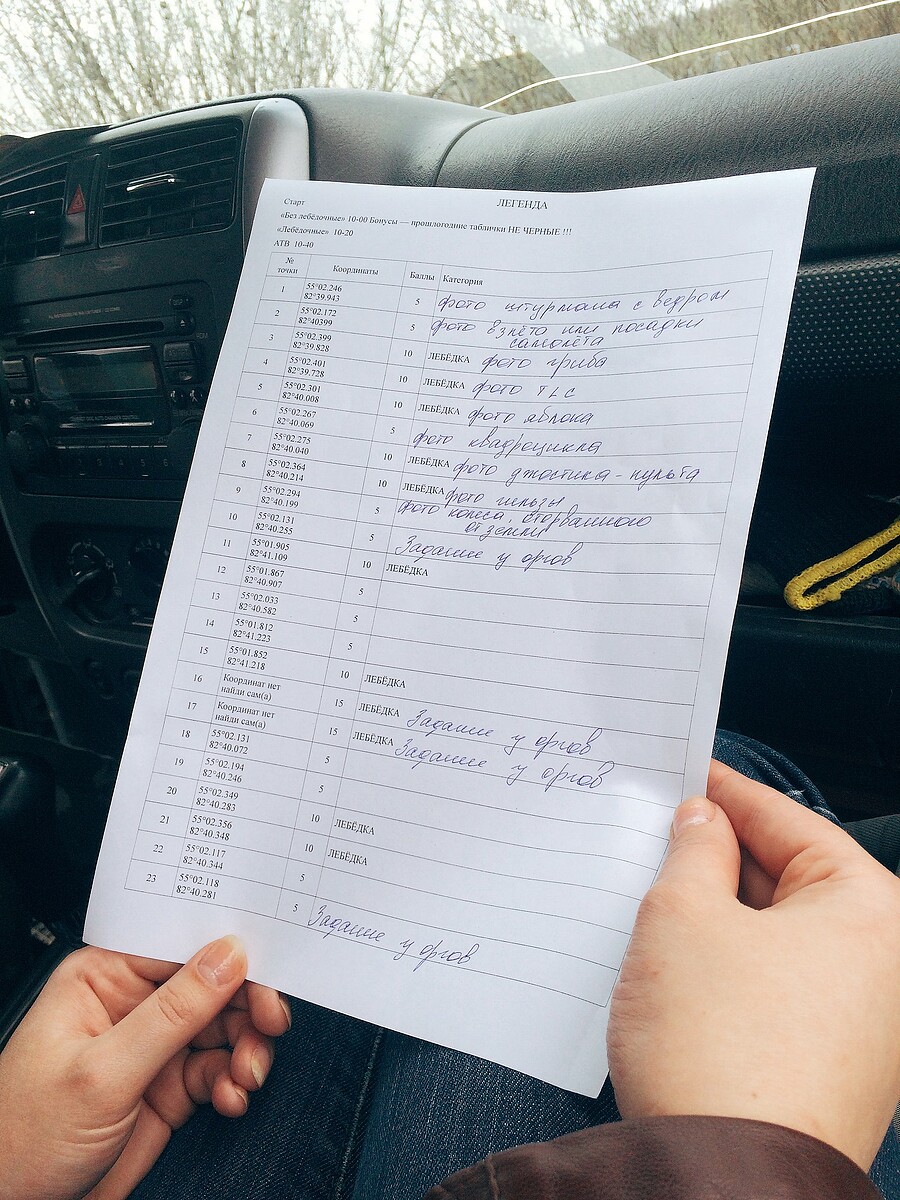 ЛЕГЕНДА
Старт
«Без лебёдочные» 10-00 Бонусы — прошлогодние таблички НЕ ЧЕРНЫЕ !!!
«Лебёдочные» 10-20
АТВ 10-40
№ точки Координаты Баллы Категория
1 55°02.246 5 фото штурмана с ведром
82°39.943
2 55°02.172 5 фото взлёта или посадки
82°40399 самолёта
3 55°02.399 10 ЛЕБЁДКА фото гриба
82°39.828
4 55°02.401 10 ЛЕБЁДКА фото TLC
82°39.728
5 55°02.301 10 ЛЕБЁДКА фото яблока
82°40.008
6 55°02.267 5 фото квадроцикла
82°40.069
7 55°02.275 10 ЛЕБЁДКА фото джостика-пульта
82°40.040
8 55°02.364 10 ЛЕБЁДКА фото гильзы
82°40.214
9 55°02.294 5 фото колеса, оторванного
82°40.199 от земли
10 55°02.131 5 Задание у оргов
82°40.255
11 55°01.905 10 ЛЕБЁДКА
82°41.109
12 55°01.867 5
82°40.907
13 55°02.033 5
82°40.582
14 55°01.812 5
82°41.223
15 55°01.852 10 ЛЕБЁДКА
82°41.218
16 Координат нет 15 ЛЕБЁДКА Задание у оргов
найди сам(а)
17 Координат нет 15 ЛЕБЁДКА Задание у оргов
найди сам(а)
18 55°02.131 5
82°40.072
19 55°02.194 5
82°40.246
20 55°02.349 10 ЛЕБЁДКА
82°40.283
21 55°02.356 10 ЛЕБЁДКА
82°40.348
22 55°02.117 5
82°40.344
23 55°02.118 5 Задание у оргов
82°40.281